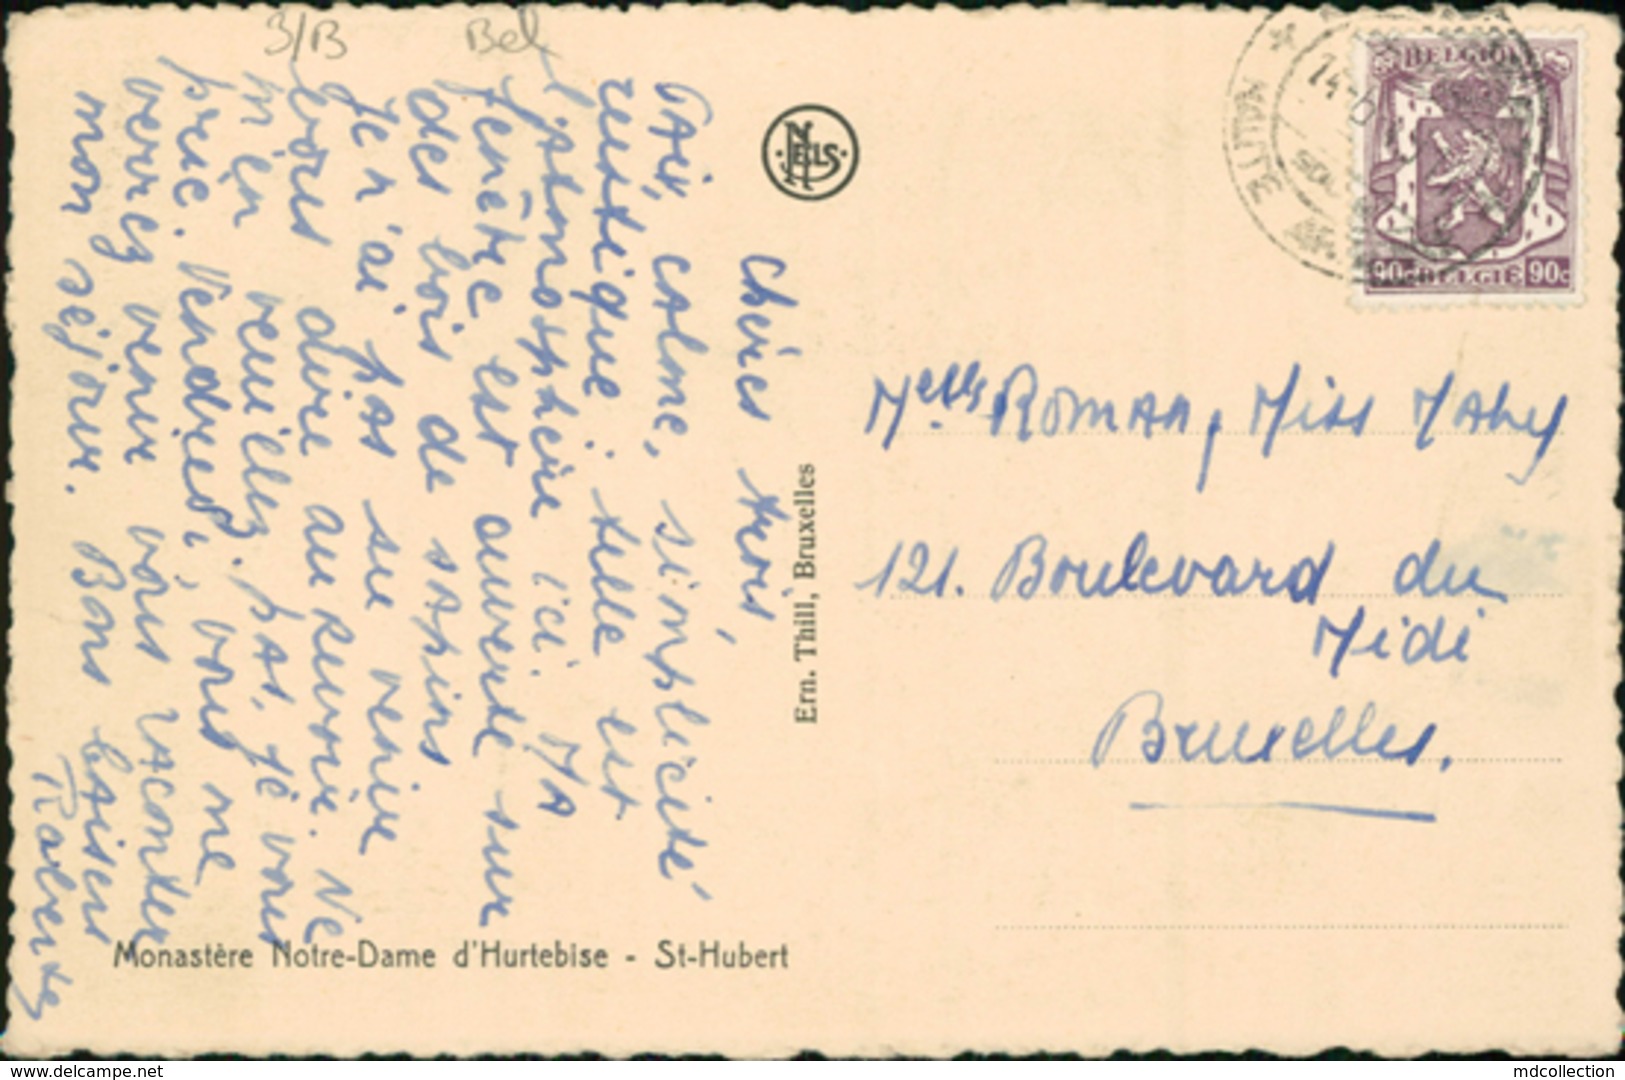 3/B
Bel
NELS
BELGIQUE
BELGIE
90c
90c
Chères trois,
Paix, calme, simplicité
rustique : telle est
l'atmosphère ici. Ma
fenêtre est ouverte sur
des bois de sapins
Je n'ai pas su venir
vous dire au revoir. Ne
m'en veuillez pas, je vous
prie. Vendredi, vous me
verrez venir vous raconter
mon séjour. Bons baisers
Ern. Thill, Bruxelles
Melles Roman, Miss Maby
121. Boulevard du
Midi
Bruxelles.
Monastère Notre-Dame d'Hurtebise - St-Hubert
www.delcampe.net
mdcollection